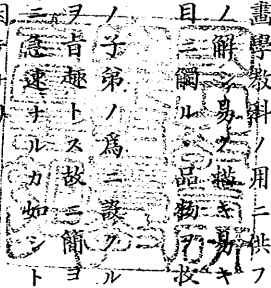 畫學教科ノ用ニ供フ
ノ解シ易ク描キ易キ
目ニ觸ルヽ品物ヲ
ノ子弟ノ爲ニ設クル
ヲ旨趣トス故ニ簡ヨ
ニ急速ナルカ如シト